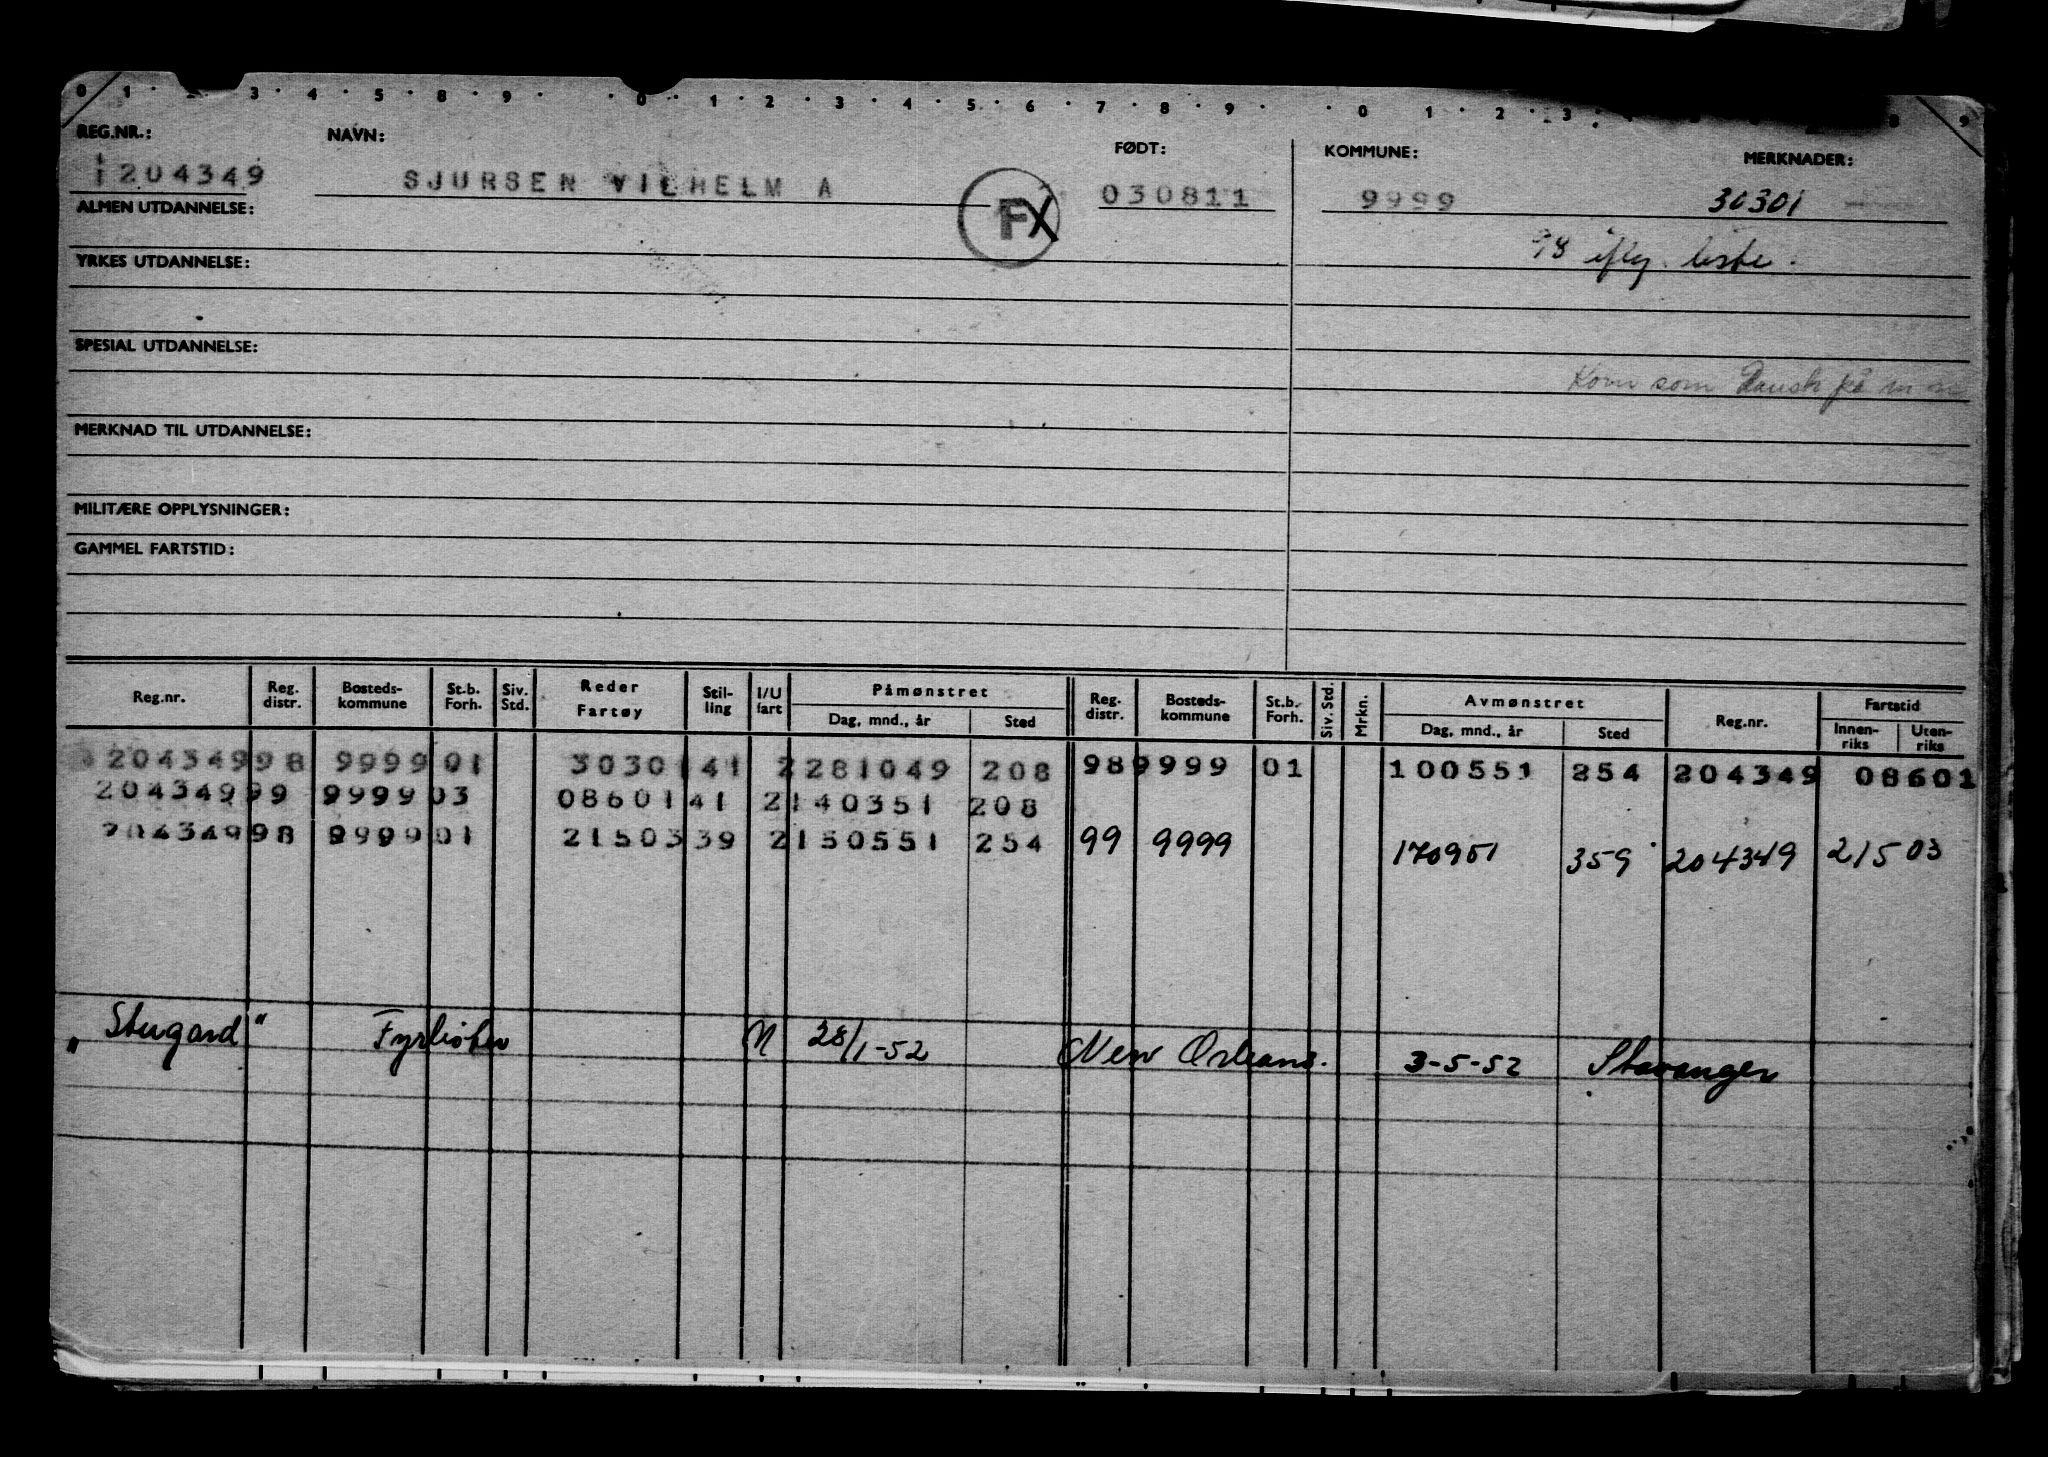 0 1 3 4 5 8 9 0 1 2 3 4 5 6 7 8 9 0 1 2 3 4 8 9
REG.NR.: NAVN: FØDT: KOMMUNE: MERKNADER:
1204349 SJURSEN VILHELM A FX 030811 9999 30301
ALMEN UTDANNELSE:
98 iflg. liste.
YRKES UTDANNELSE:
SPESIAL UTDANNELSE:
Kom som Dansk på
MERKNAD TIL UTDANNELSE:
MILITÆRE OPPLYSNINGER:
GAMMEL FARTSTID:
Reg.nr. Reg. distr. Bosteds-kommune St.b. Forh. Siv. Std. Reder Fartøy Stil-ling I/U fart Påmønstret Dag, mnd., år Sted Reg. distr. Bosteds-kommune St.b. Forh. Siv. Std. Mrkn. Avmønstret Dag, mnd., år Sted Reg.nr. Fartstid Innen-riks Uten-riks
204349 98 9999 01 30301 41 2 281049 208 98 9999 01 100551 254 204349 08601
204349 99 9999 03 08601 41 2 140351 208
204349 98 9999 01 21503 39 2 150551 254 99 9999 170951 359 204349 21503
„Stugard" Fyrbøter N 28/1-52 New Orleans. 3-5-52 Stavanger